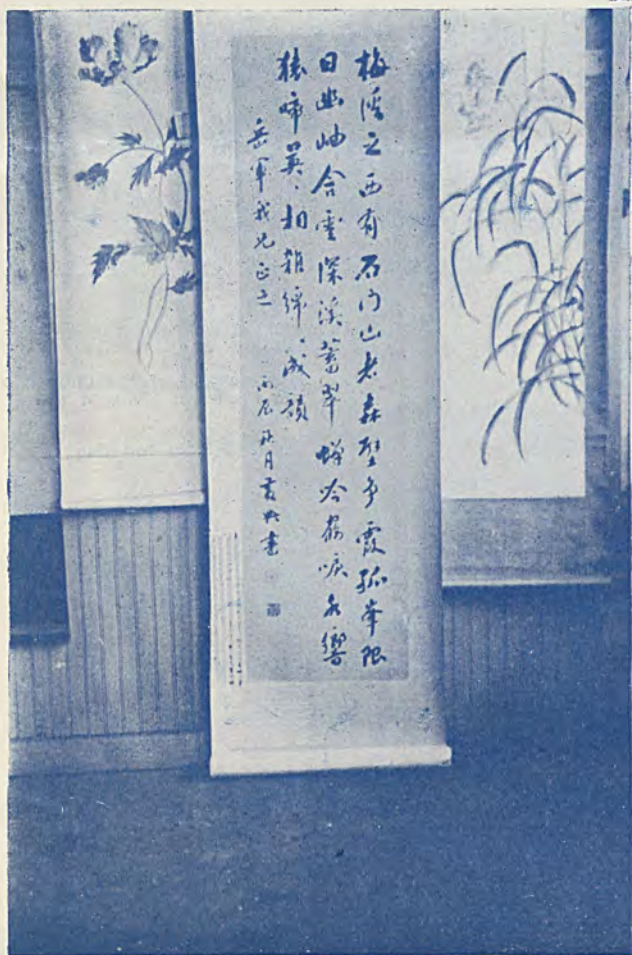 梅溪之西有石門山者森壁爭霞孤峯限
日幽岫含雲深溪蓄翠蟬吟鶴唳水響
猿啼英〻相雜綿〻成韻
岳軍我兄正之
丙辰秋月黃興書